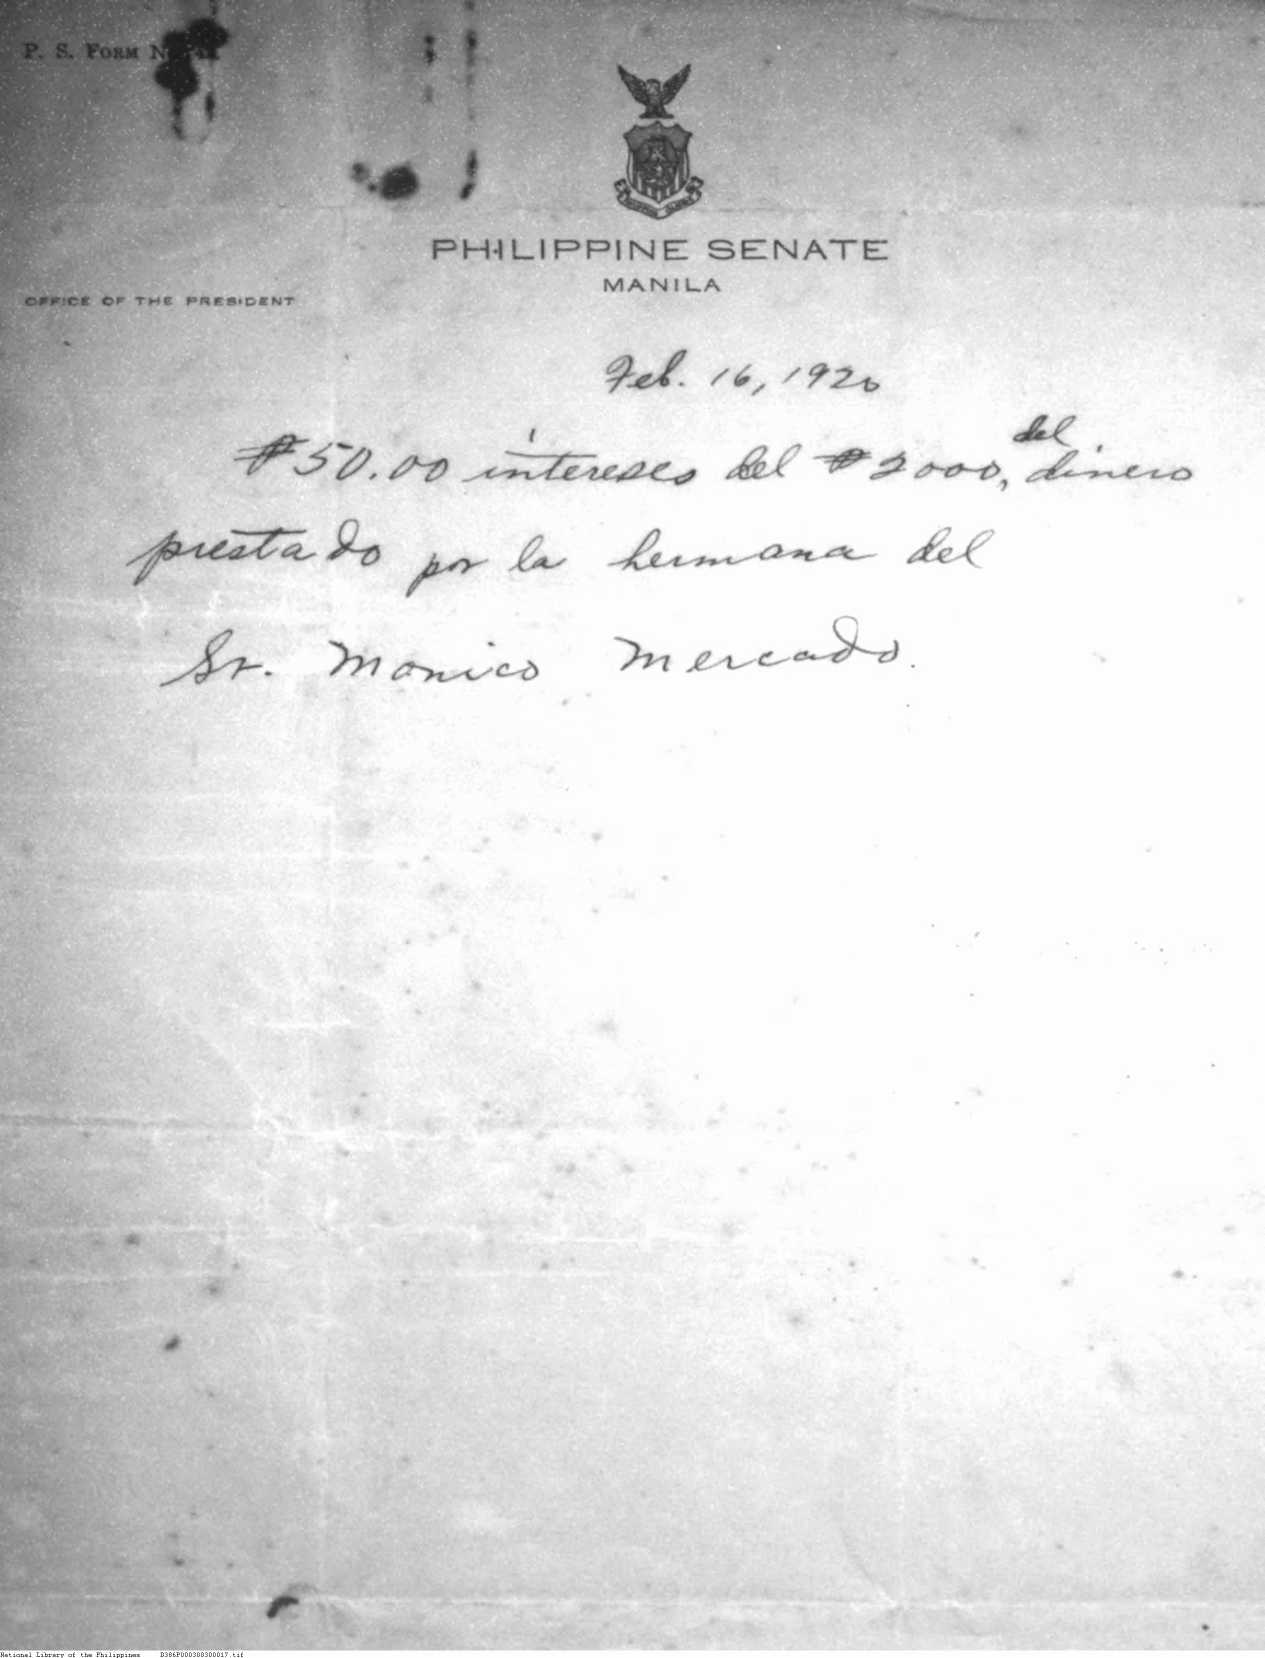 P. S. FORM
PHILIPPINE SENATE
MANILA
OFFICE OF THE PRESIDENT
Feb. 16, 1920
₱50.00 intereses del ₱2000, del dinero
prestado por la hermana del
Sr. Monico Mercado.
National Library of the Philippines B386P000308300017.tif